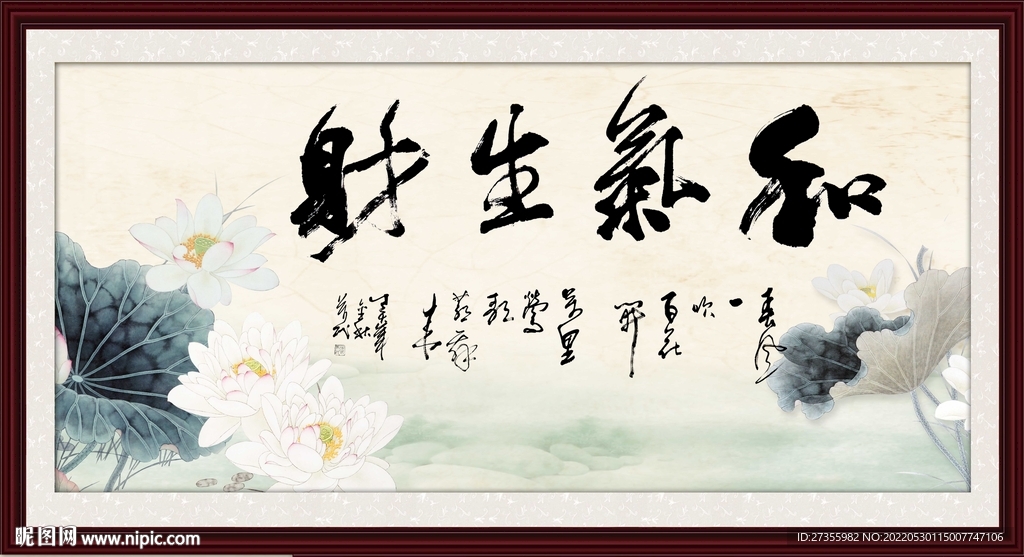 和氣生財
春风一吹百花開万里鶯歌燕舞来
昵图网 www.nipic.com
ID:27355982 NO:20220530115007747106